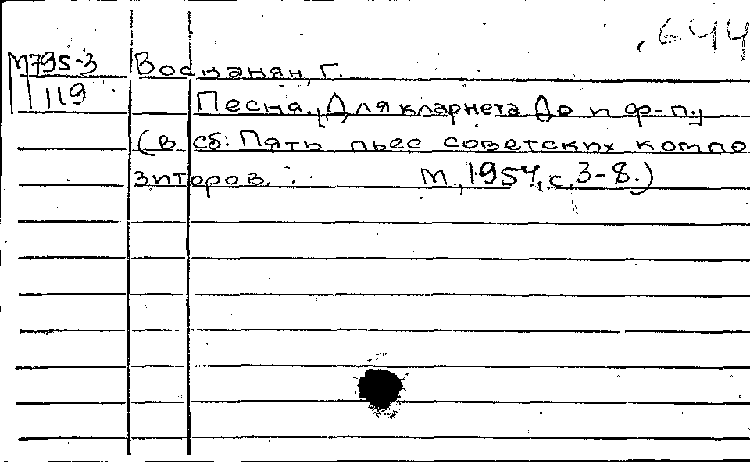 .644
М795-3 Восканян, Г.
119 Песня. [Для кларнета До и ф-п.]
(В сб: Пять пьес советских компо
зиторов. М, 1957, с. 3-8.)